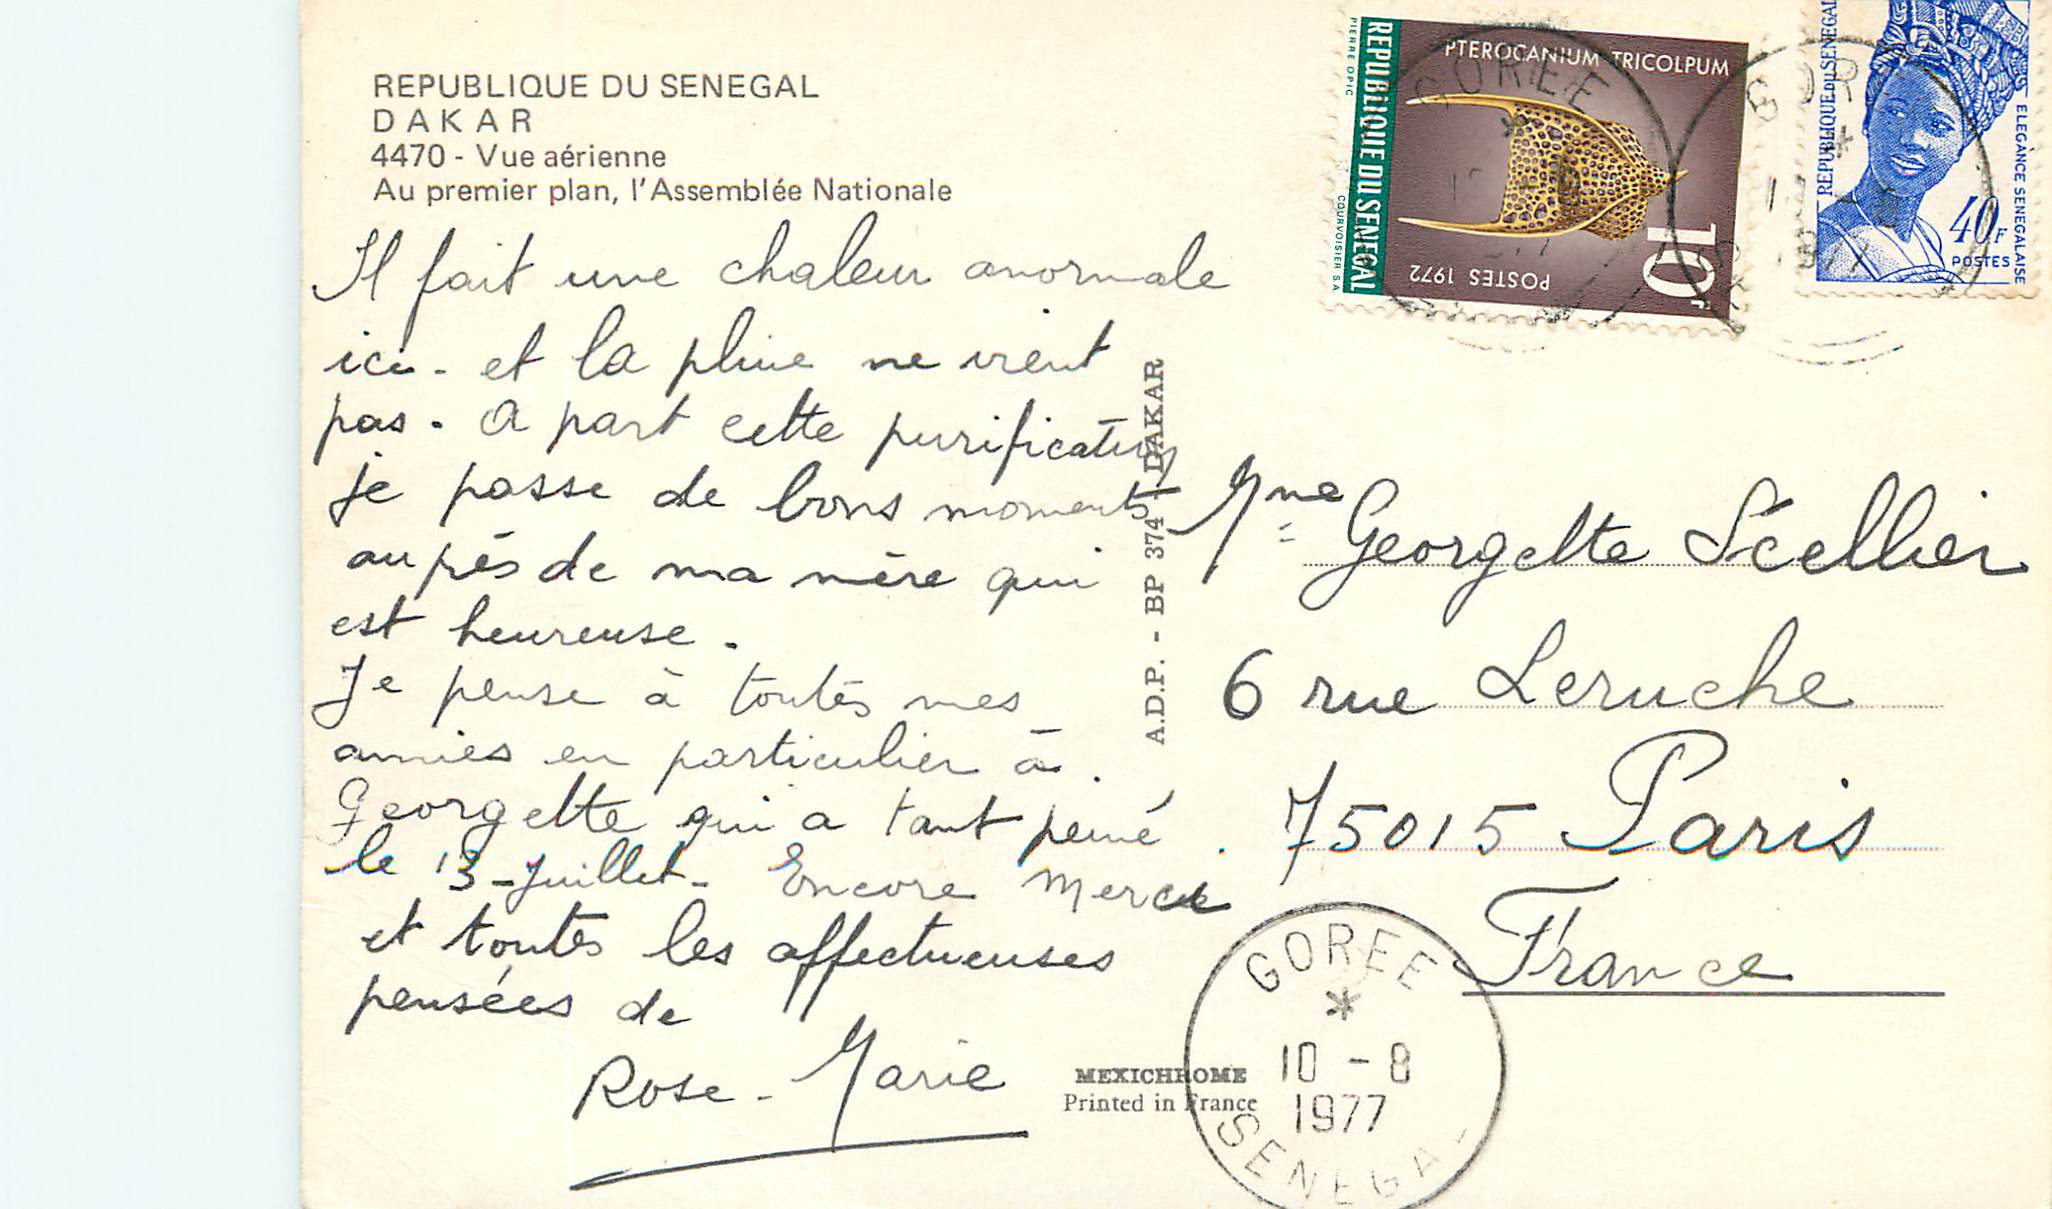 REPUBLIQUE DU SENEGAL
DAKAR
4470 - Vue aérienne
Au premier plan, l'Assemblée Nationale
Il fait une chaleur anormale
ici - et la pluie ne vient
pas. A part cette purification
je passe de bons moments
auprès de ma mère qui
est heureuse.
Je pense à toutes mes
amies en particulier à
Georgette qui a tant peiné
le 13 - Juillet - Encore merci
et toutes les affectueuses
pensées de
Rose - Marie
A.D.P. - BP 374 - DAKAR
MEXICHROME
Printed in France
REPUBLIQUE DU SENEGAL
PIERRE OPIC
COURVOISIER S.A
PTEROCANIUM TRICOLPUM
POSTES 1972
10F
GOREE
REPUBLIQUE DU SENEGAL
ELEGANCE SENEGALAISE
40F
POSTES
GOR
1977
Mme Georgette Scellier
6 rue Leruche
75015 Paris
France
GOREE
10 - 8
1977
SENEGA